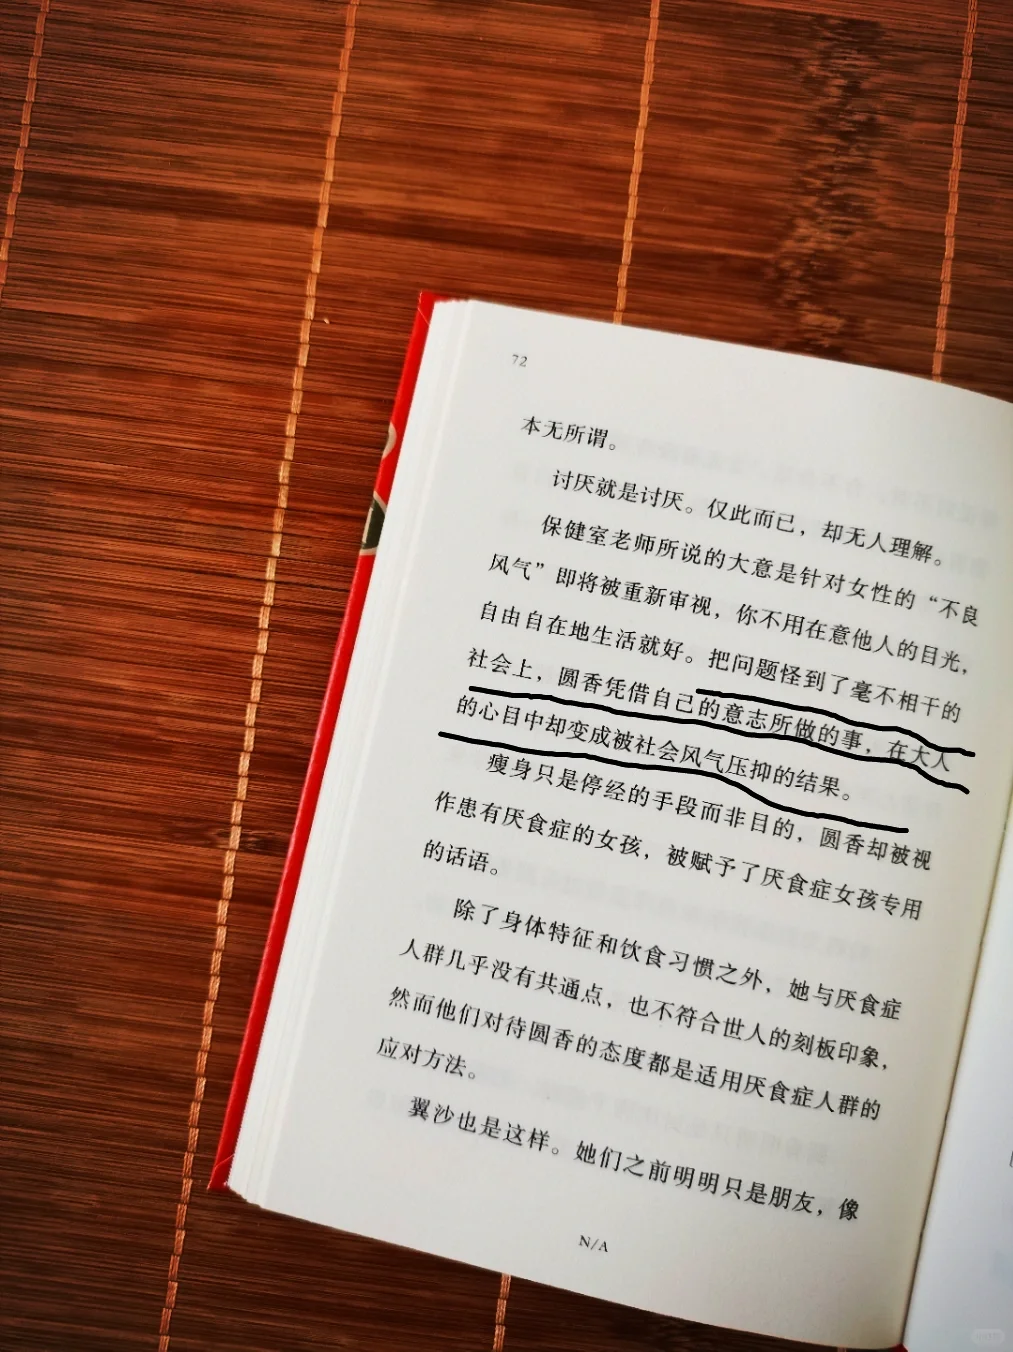 72
本无所谓。
讨厌就是讨厌。仅此而已，却无人理解。
保健室老师所说的大意是针对女性的“不良
风气”即将被重新审视，你不用在意他人的目光，
自由自在地生活就好。把问题怪到了毫不相干的
社会上，圆香凭借自己的意志所做的事，在大人
的心目中却变成被社会风气压抑的结果。
瘦身只是停经的手段而非目的，圆香却被视
作患有厌食症的女孩，被赋予了厌食症女孩专用
的话语。
除了身体特征和饮食习惯之外，她与厌食症
人群几乎没有共通点，也不符合世人的刻板印象，
然而他们对待圆香的态度都是适用厌食症人群的
应对方法。
翼沙也是这样。她们之前明明只是朋友，像
N/A